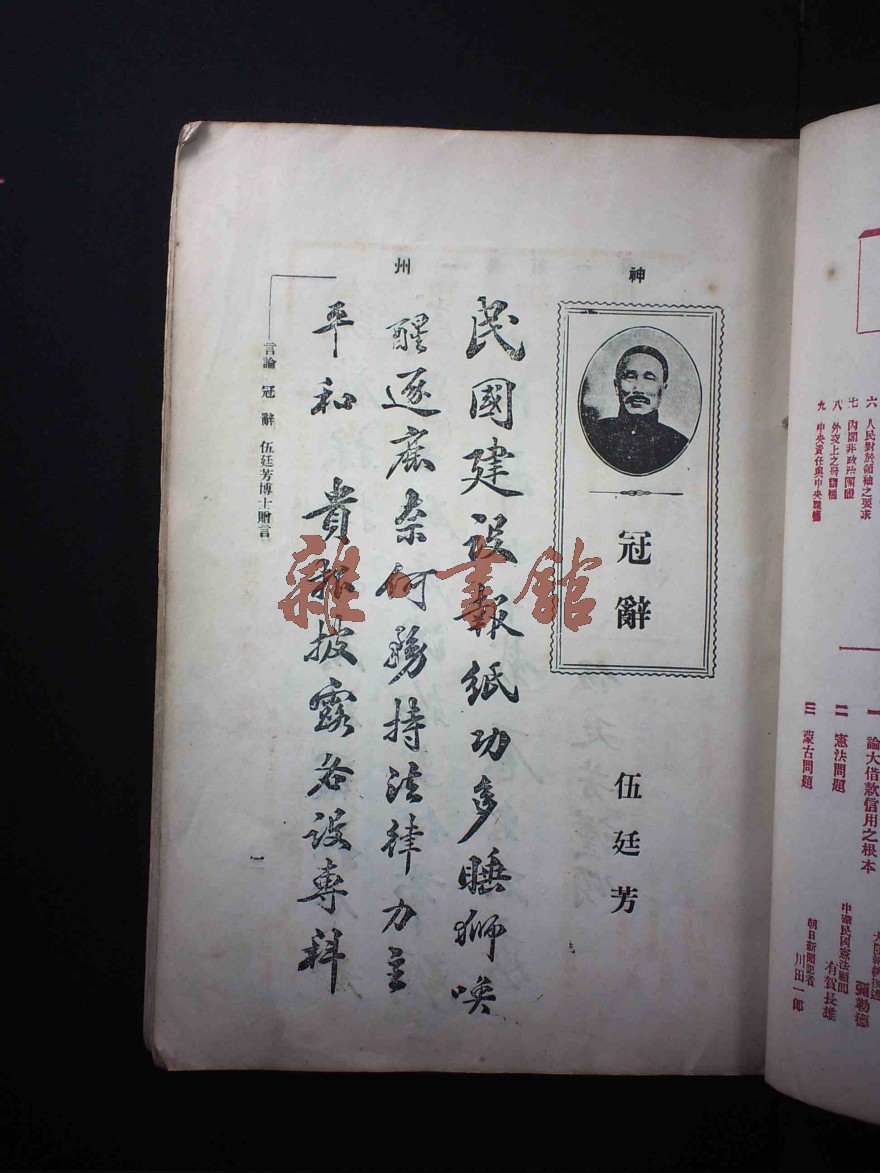 六 人民對於領袖之要求
七 內閣非政治團體
八 外交上之
九 中央責任與中央職權
一 論大借款信用之根本
彌勒德
二 憲法問題
中華民國憲法顧問
有賀長雄
三 蒙古問題
朝日新聞記者
川田一郎
神州
冠辭
伍廷芳
民國建設報紙功多睡獅喚
醒逐鹿奈何務持法律力主
平和 貴報披露各設專科
言論 冠辭 伍廷芳博士贈言
一
雜書館